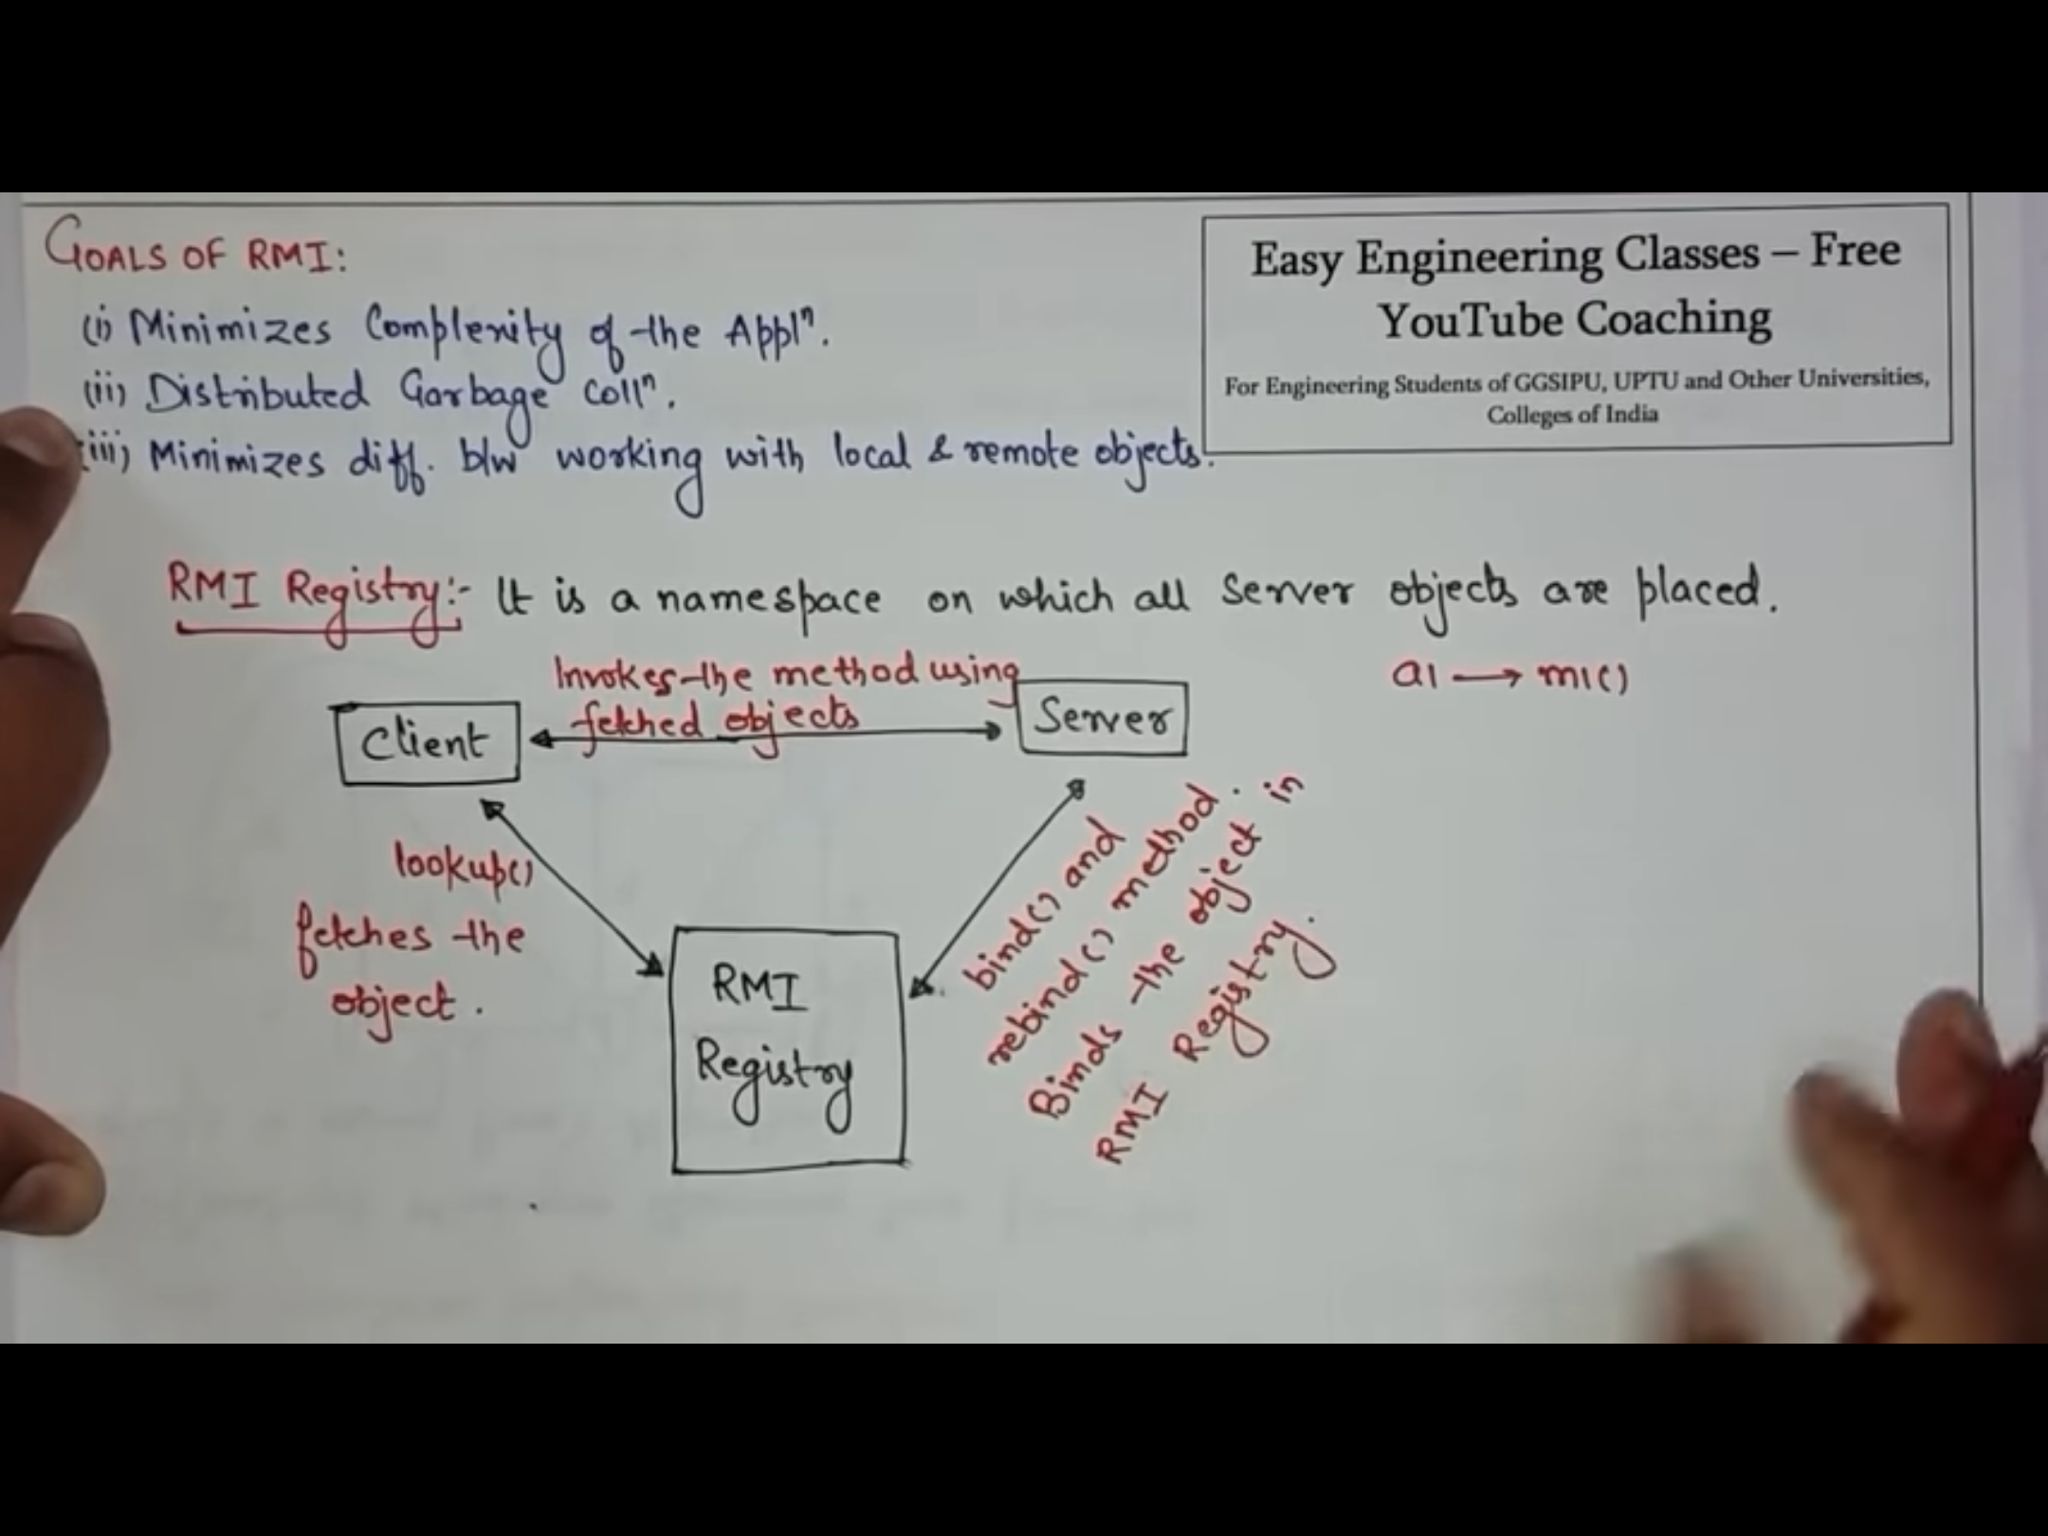 GOALS OF RMI:
(i) Minimizes Complexity of the Applⁿ.
(ii) Distributed Garbage collⁿ.
(iii) Minimizes diff. b/w working with local & remote objects.
Easy Engineering Classes – Free
YouTube Coaching
For Engineering Students of GGSIPU, UPTU and Other Universities,
Colleges of India
RMI Registry:- It is a namespace on which all server objects are placed.
a1 → m1()
Invokes the method using
fetched objects
Client
Server
lookup()
fetches the
object.
bind() and
rebind() method.
Binds the object in
RMI Registry.
RMI
Registry